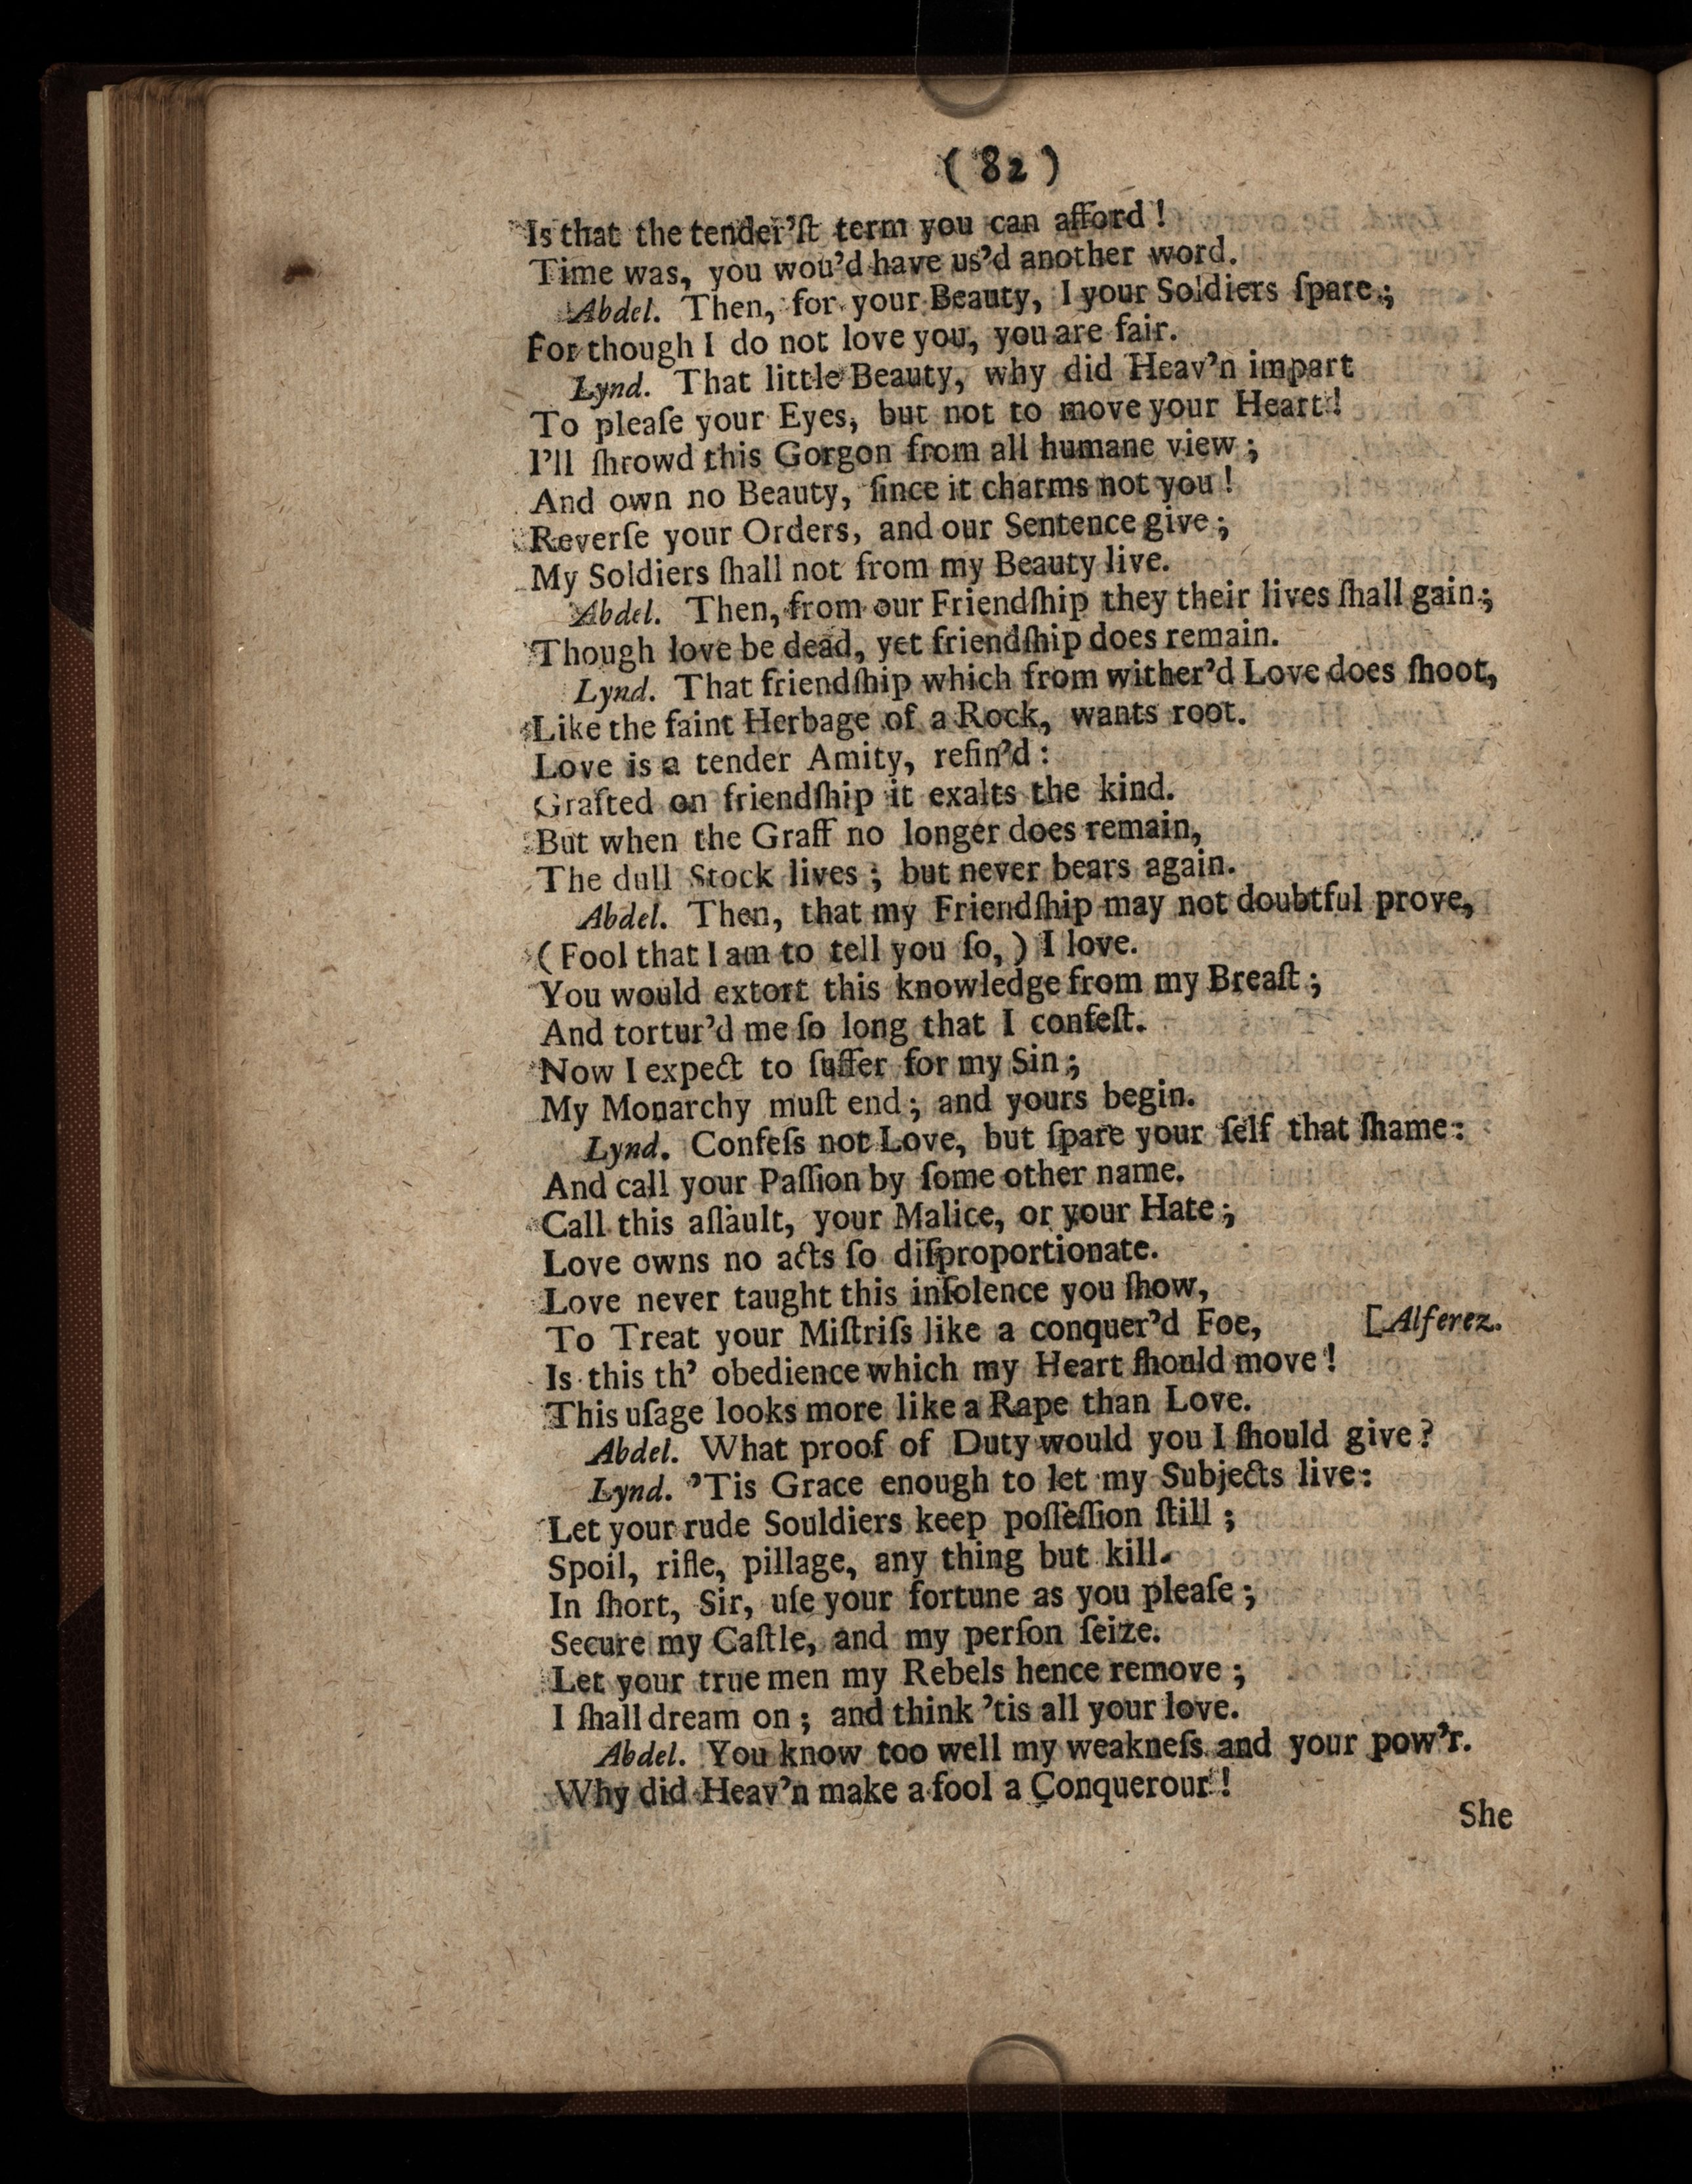 ( 82 )
Is that the tender'ſt term you can afford !
Time was, you wou'd have us'd another word.
Abdel. Then, for your Beauty, I your Soldiers ſpare ;
For though I do not love you, you are fair.
Lynd. That little Beauty, why did Heav'n impart
To pleaſe your Eyes, but not to move your Heart !
I'll ſhrowd this Gorgon from all humane view ;
And own no Beauty, ſince it charms not you !
Reverſe your Orders, and our Sentence give ;
My Soldiers ſhall not from my Beauty live.
Abdel. Then, from our Friendſhip they their lives ſhall gain ;
Though love be dead, yet friendſhip does remain.
Lynd. That friendſhip which from wither'd Love does ſhoot,
Like the faint Herbage of a Rock, wants root.
Love is a tender Amity, refin'd :
Grafted on friendſhip it exalts the kind.
But when the Graff no longer does remain,
The dull Stock lives ; but never bears again.
Abdel. Then, that my Friendſhip may not doubtful prove,
( Fool that I am to tell you ſo, ) I love.
You would extort this knowledge from my Breaſt ;
And tortur'd me ſo long that I confeſt.
Now I expect to ſuffer for my Sin ;
My Monarchy muſt end ; and yours begin.
Lynd. Confeſs not Love, but ſpare your ſelf that ſhame :
And call your Paſſion by ſome other name.
Call this aſſault, your Malice, or your Hate ;
Love owns no acts ſo diſproportionate.
Love never taught this inſolence you ſhow,
To Treat your Miſtriſs like a conquer'd Foe, [Alferez.
Is this th' obedience which my Heart ſhould move !
This uſage looks more like a Rape than Love.
Abdel. What proof of Duty would you I ſhould give ?
Lynd. 'Tis Grace enough to let my Subjects live :
Let your rude Souldiers keep poſſeſſion ſtill ;
Spoil, rifle, pillage, any thing but kill.
In ſhort, Sir, uſe your fortune as you pleaſe ;
Secure my Caſtle, and my perſon ſeize.
Let your true men my Rebels hence remove ;
I ſhall dream on ; and think 'tis all your love.
Abdel. You know too well my weakneſs and your pow'r.
Why did Heav'n make a fool a Conquerour !
She